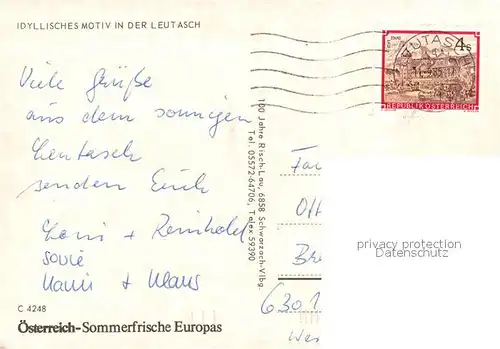 IDYLLISCHES MOTIV IN DER LEUTASCH
4 S
LEUTASCH
REPUBLIK ÖSTERREICH
Viele Grüße
aus dem sonnigen
Leutasch
senden Euch
+ Reinhold
sowie
Hanni + Klaus
C 4248
Österreich-Sommerfrische Europas
100 Jahre Risch-Lau, 6858 Schwarzach-Vlbg.
Tel. 05572-64706, Telex 59390
Fa
Br
6301
privacy protection
Datenschutz